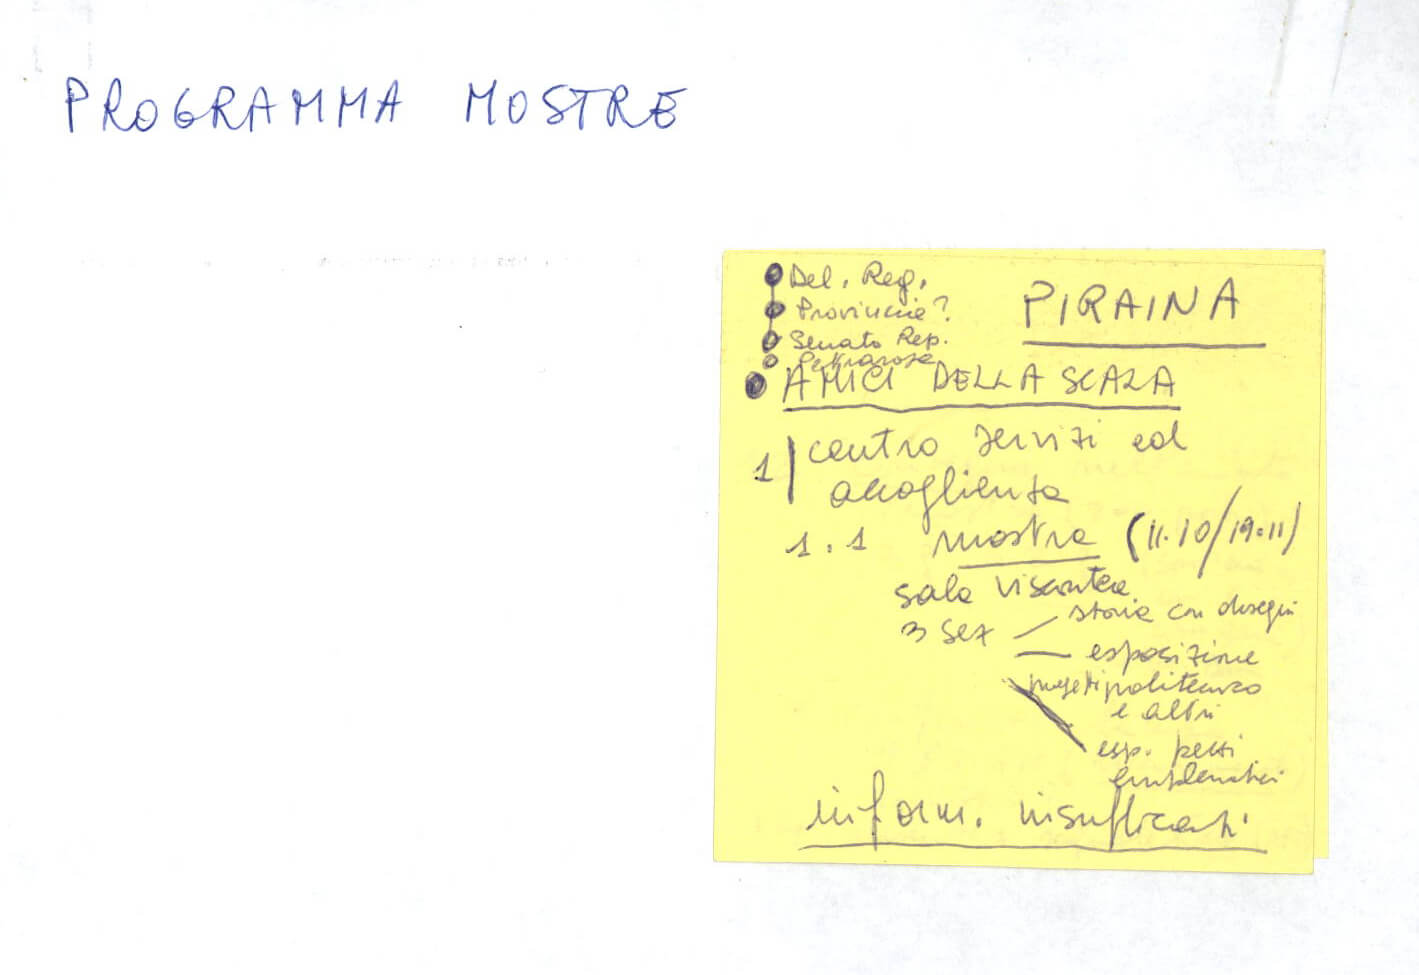 PROGRAMMA MOSTRE
Del. Reg.
PIRAINA
Provincie?
Senato Rep.
Pettrarosa
AMICI DELLA SCALA
1 centro servizi ed
accoglienza
1.1 mostra (11.10/19.11)
sala viscontea
3 sez storia con disegni
esposizione
progetti politecnico
e altri
esp. pezzi
emblematici
inform. insufficenti